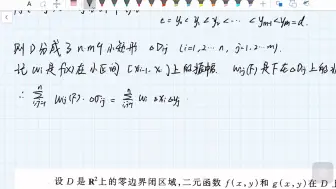 c = y₀ < y₁ < y₂ < ⋯ < yₘ₋₁ < yₘ = d.
则 D 分成了 n·m 个小矩形 △Dᵢⱼ (i=1,2⋯n, j=1,2⋯m).
记 wᵢ 是 f(x) 在小区间 [xᵢ₋₁, xᵢ] 上的振幅. wᵢⱼ(F) 是 F 在 △Dᵢⱼ 上的
∴ Σ wᵢⱼ(F)·△σᵢⱼ = Σ wᵢ △xᵢ△yⱼ
设 D 是 R² 上的零边界闭区域,二元函数 f(x,y) 和 g(x,y) 在 D